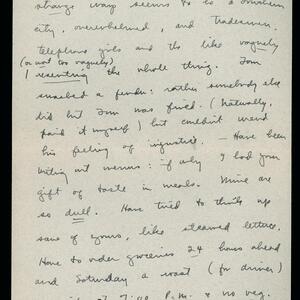 strange way seems to be a
city, overwhelmed, and tradesmen,
telephone girls and the like vaguely
(or not too vaguely)
resenting the whole thing. Tom
smashed a fender: rather somebody else
did but Tom was fined. (Naturally,
paid it myself) but couldn't
his feeling of injustice. — Have been
writing out menus: if only I had your
gift of taste in meals. Mine are
so dull. Have tried to think up
some of yours, like steamed lettuce.
Have to order groceries 24 hours ahead
and Saturday a roast (for dinner)
7:00 P.M. & no veg.